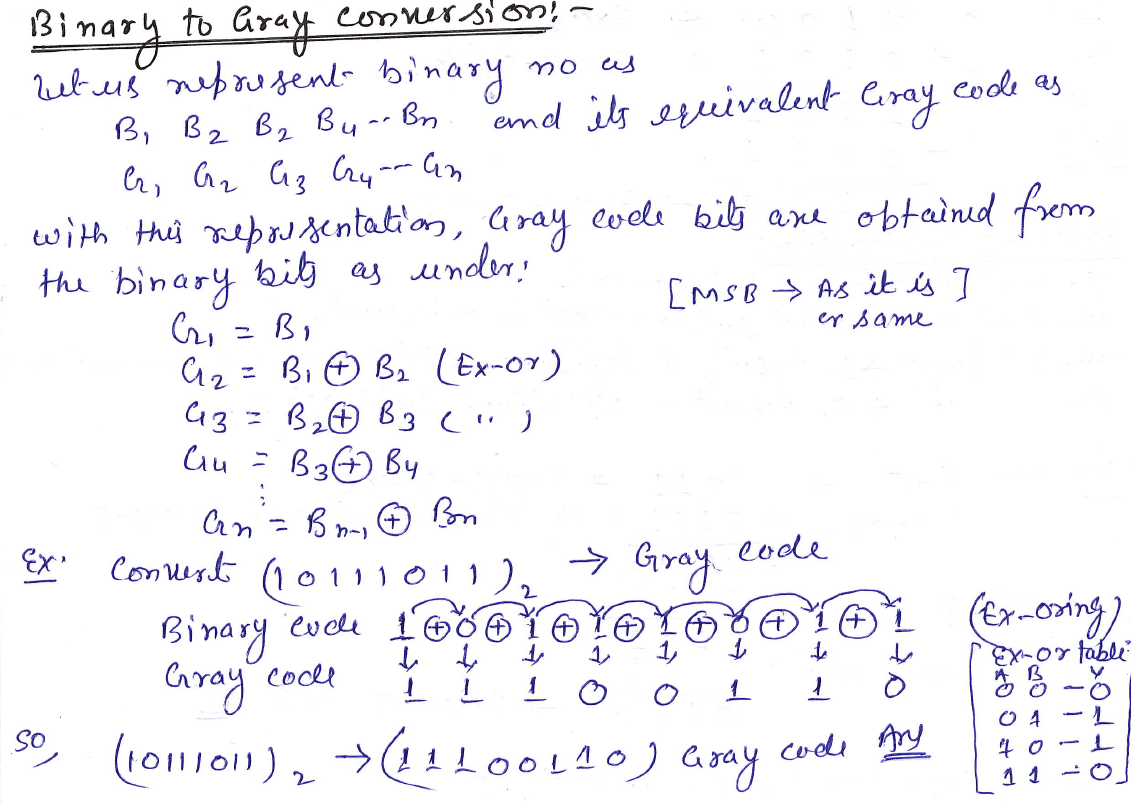 Binary to Gray conversion:-
Let us represent binary no as
B1 B2 B2 B4 -- Bn and its equivalent Gray code as
G1 G2 G3 G4 -- Gn
with this representation, Gray code bits are obtained from
the binary bits as under:
[MSB → As it is]
or same
G1 = B1
G2 = B1 ⊕ B2 (Ex-or)
G3 = B2 ⊕ B3 ( " )
G4 = B3 ⊕ B4
⋮
Gn = Bn-1 ⊕ Bn
Ex. Convert (10111011)2 → Gray code
Binary code 1 ⊕ 0 ⊕ 1 ⊕ 1 ⊕ 1 ⊕ 0 ⊕ 1 ⊕ 1
↓ ↓ ↓ ↓ ↓ ↓ ↓ ↓
Gray code 1 1 1 0 0 1 1 0
(Ex-oring)
Ex-or table
A B Y
0 0 - 0
0 1 - 1
1 0 - 1
1 1 - 0
So, (10111011)2 → (11100110) Gray code Ans